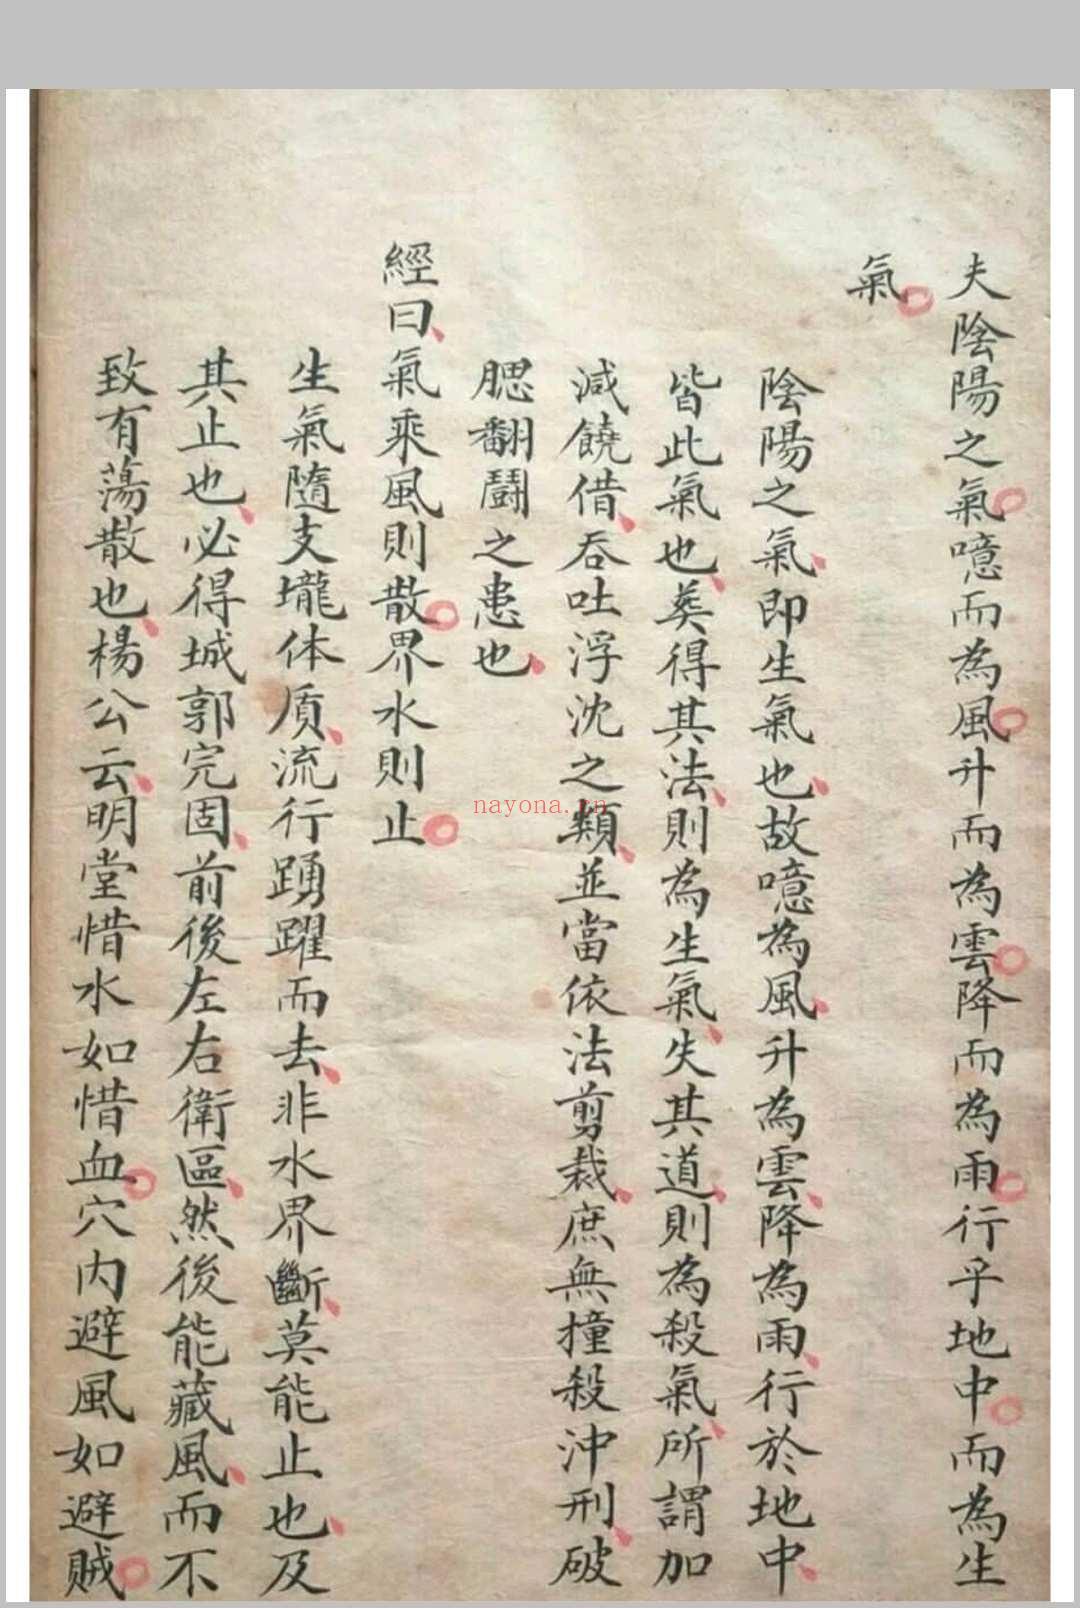 夫陰陽之氣噫而為風升而為雲降而為雨行乎地中而為生
氣
陰陽之氣即生氣也故噫為風升為雲降為雨行於地中
皆此氣也葬得其法則為生氣失其道則為殺氣所謂加
減饒借吞吐浮沈之類並當依法剪裁庶無撞殺沖刑破
腮翻鬪之患也
經曰氣乘風則散界水則止
生氣隨支壠体质流行踴躍而去非水界斷莫能止也及
其止也必得城郭完固前後左右衛區然後能藏風而不
致有蕩散也楊公云明堂惜水如惜血穴内避風如避賊
nayona.cn